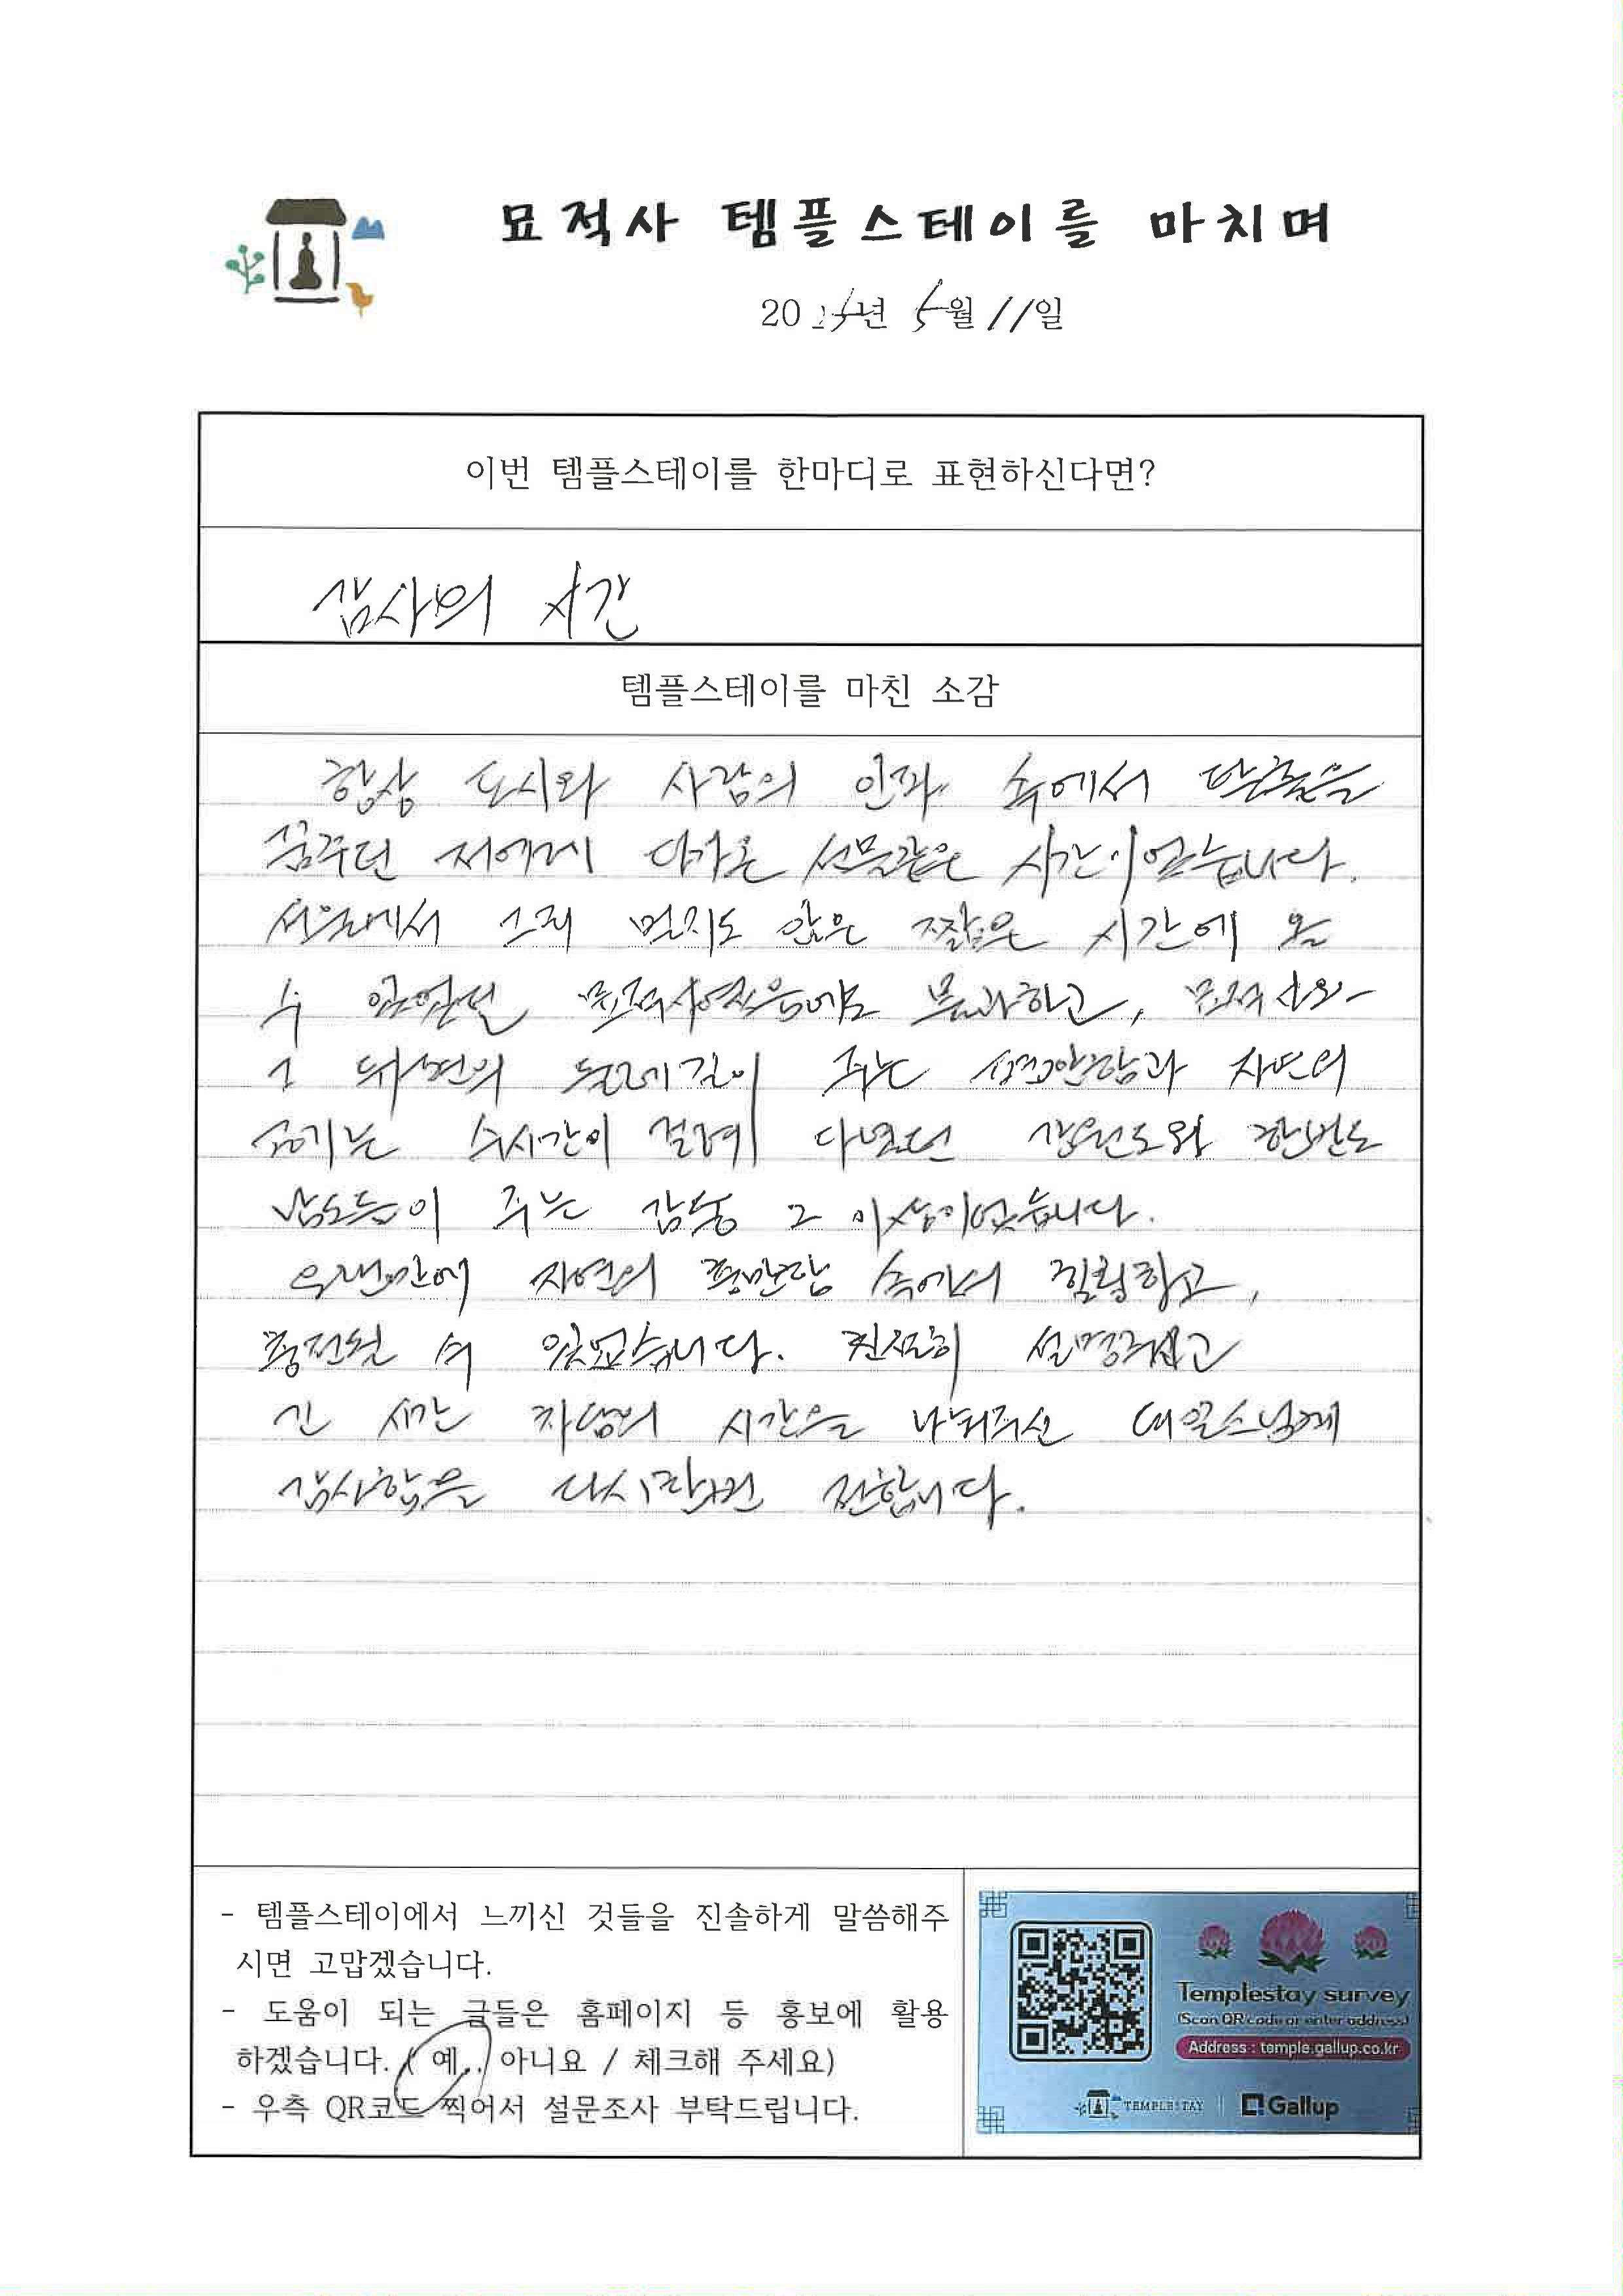 묘적사 템플스테이를 마치며
2025년 5월 11일
이번 템플스테이를 한마디로 표현하신다면?
감사의 시간
템플스테이를 마친 소감
항상 도시와 사람의 인파 속에서 탈출을
꿈꾸던 저에게 다가온 선물같은 시간이었습니다.
서울에서 그리 멀지도 않은 짧은 시간에 올
수 있었던 묘적사였음에도 불구하고, 묘적사와
그 뒤편의 둘레길이 주는 편안함과 자연의
공기는 수시간이 걸려 다녔던 강원도와 한반도
남도등이 주는 감동 그 이상이었습니다.
오랜만에 자연의 평안함 속에서 힐링하고,
충전될 수 있었습니다. 친절히 설명해주시고
긴 시간 차담의 시간을 나눠주신 스님께
감사함을 다시한번 전합니다.
- 템플스테이에서 느끼신 것들을 진솔하게 말씀해주
시면 고맙겠습니다.
- 도움이 되는 글들은 홈페이지 등 홍보에 활용
하겠습니다. ( 예.. 아니요 / 체크해 주세요)
- 우측 QR코드 찍어서 설문조사 부탁드립니다.
Templestay survey
(Scan QR code or enter address)
Address : temple.gallup.co.kr
TEMPLESTAY Gallup